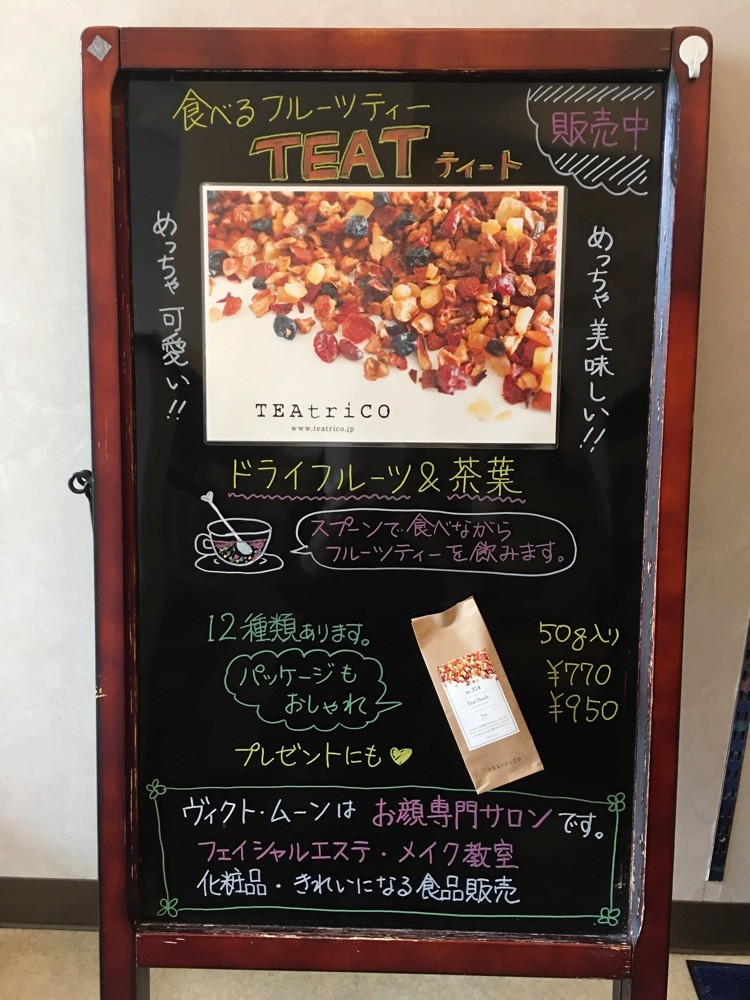 食べるフルーツティー
販売中
TEAT ティート
めっちゃ可愛い!!
めっちゃ美味しい!!
TEAtriCO
www.teatrico.jp
ドライフルーツ&茶葉
スプーンで食べながら
フルーツティーを飲みます。
12種類あります。
パッケージも
おしゃれ
プレゼントにも
50g入り
¥770
¥950
Teat Peach
TEAtriCO
ヴィクト・ムーンは お顔専門サロンです。
フェイシャルエステ・メイク教室
化粧品・きれいになる食品販売